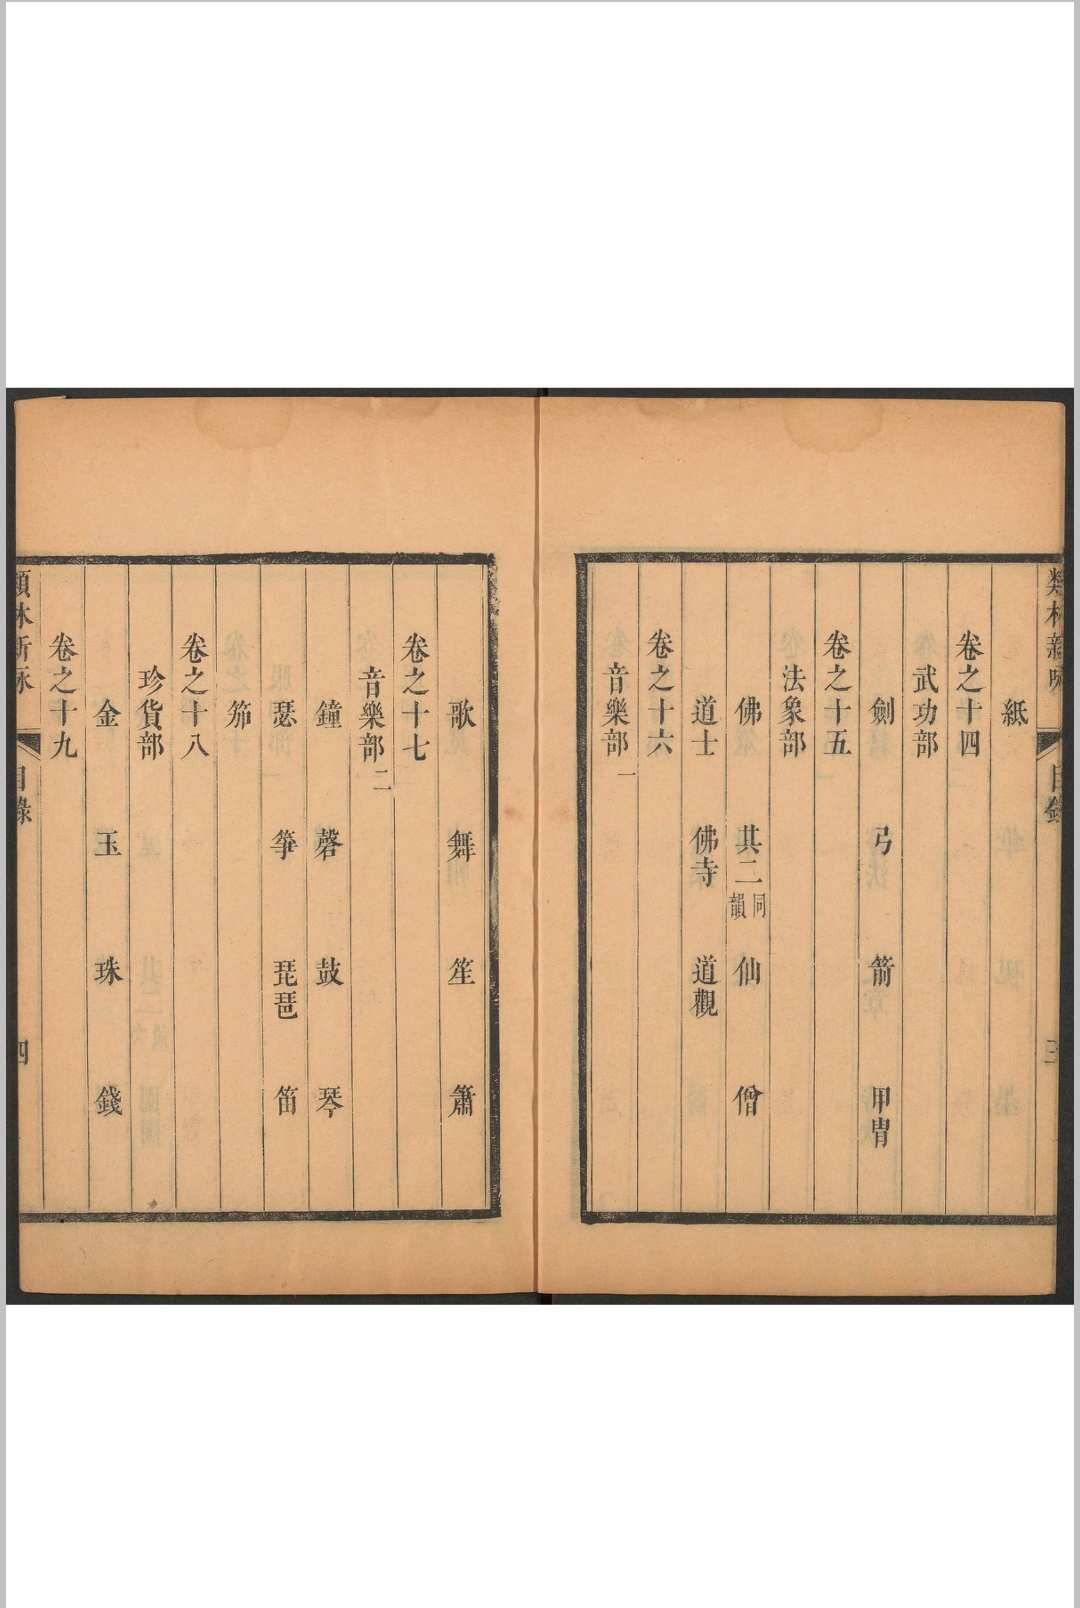 類林新咏
目錄
三
紙
卷之十四
武功部
劍 弓 箭 甲冑
卷之十五
法象部
佛 其二同韻 仙 僧
道士 佛寺 道觀
卷之十六
音樂部一
歌 舞 笙 簫
卷之十七
音樂部二
鐘 磬 鼓 琴
瑟 箏 琵琶 笛
笳
卷之十八
珍貨部
金 玉 珠 錢
卷之十九
類林新咏
目錄
四